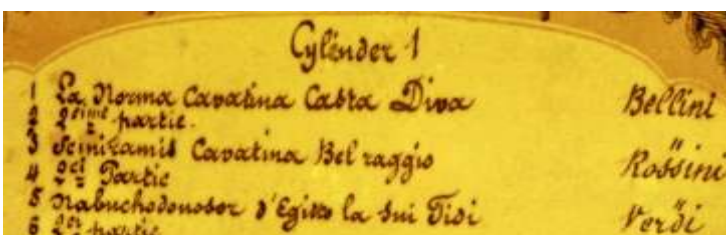 Cylinder 1
1 La Norma Cavatina Casta Diva Bellini
2 2eime partie. "
3 Semiramis Cavatina Bel raggio Rossini
4 2ei Partie "
5 Nabuchodonosor d'Egitto la sui Tidi Verdi
6 2ei partie